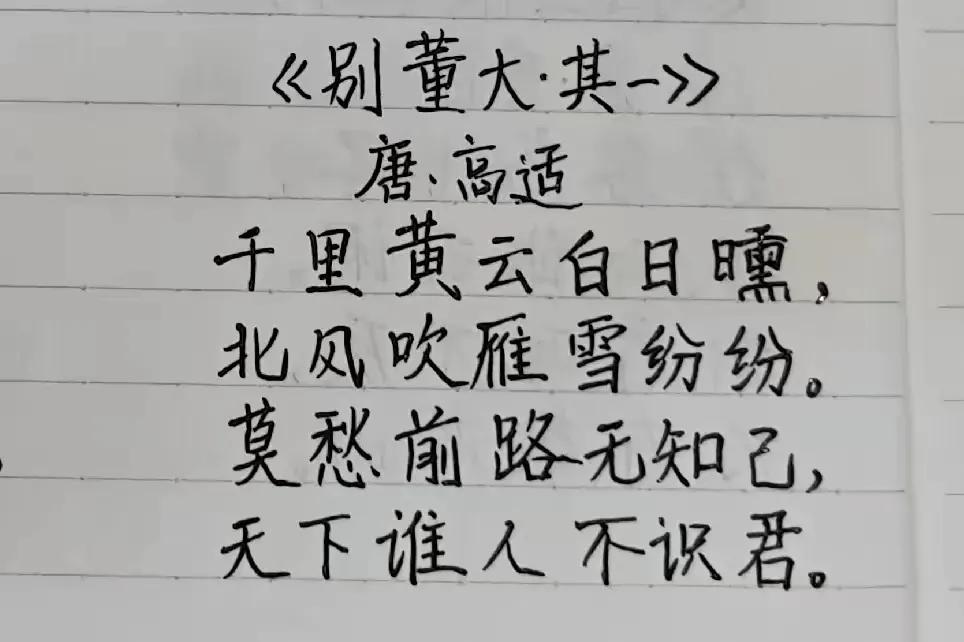 《别董大·其一》
唐·高适
千里黄云白日曛,
北风吹雁雪纷纷。
莫愁前路无知己,
天下谁人不识君。